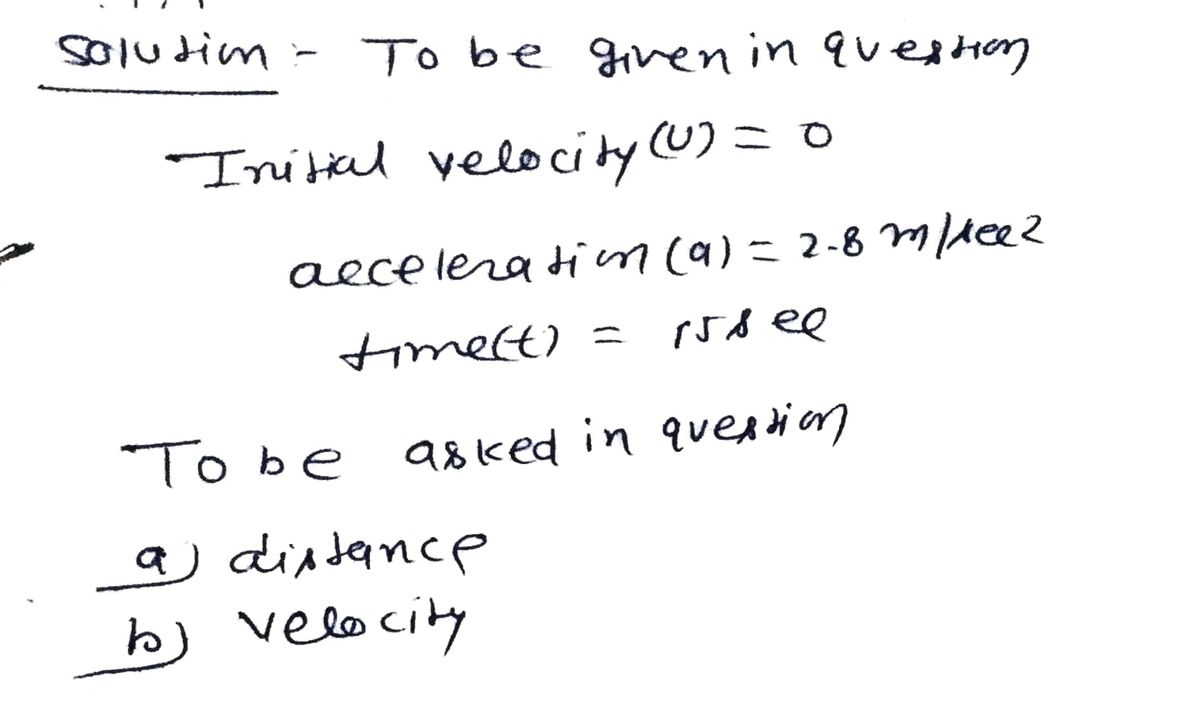 Solution :- To be given in question
Initial velocity (U) = 0
acceleration (a) = 2.8 m/sec2
time(t) = 15 sec
To be asked in question
a) distance
b) velocity